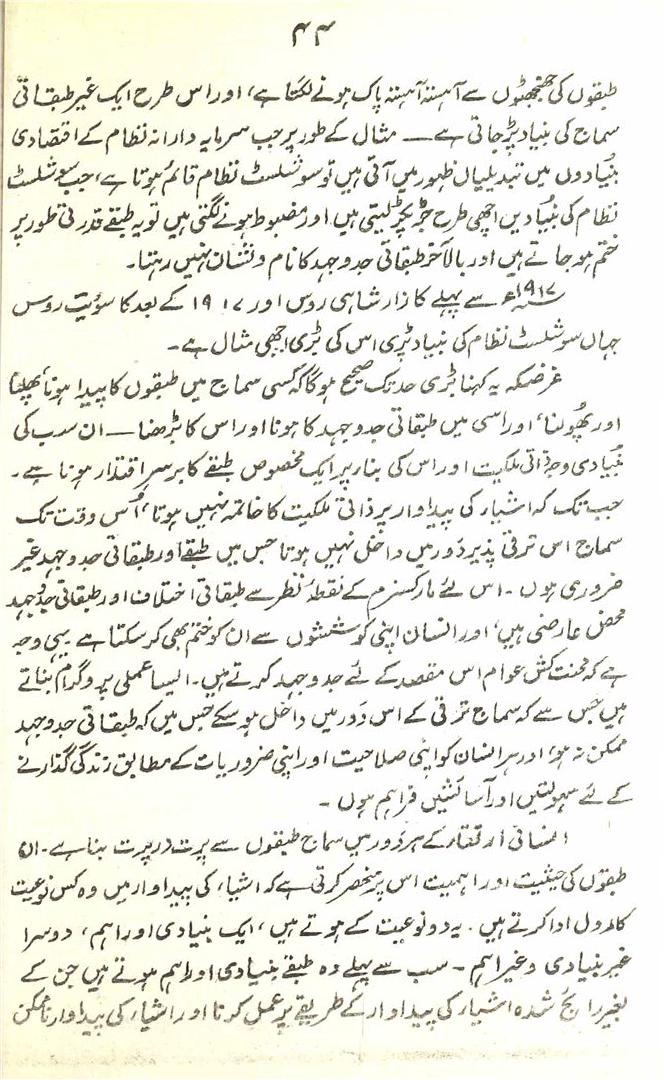 ۴۴
طبقوں کی جھنجھٹوں سے آہستہ آہستہ پاک ہونے لگتا ہے، اور اس طرح ایک غیر طبقاتی
سماج کی بنیاد پڑ جاتی ہے — مثال کے طور پر جب سرمایہ دارانہ نظام کے اقتصادی
بنیادوں میں تبدیلیاں ظہور میں آتی ہیں تو سوشلسٹ نظام قائم ہوتا ہے، جب سوشلسٹ
نظام کی بنیادیں اچھی طرح جڑ پکڑ لیتی ہیں اور مضبوط ہونے لگتی ہیں تو یہ طبقے قدرتی طور پر
ختم ہو جاتے ہیں اور بالآخر طبقاتی جدوجہد کا نام و نشان نہیں رہتا۔
۱۹۱۷ء سے پہلے کا زار شاہی روس اور ۱۹۱۷ کے بعد کا سوویت روس
جہاں سوشلسٹ نظام کی بنیاد پڑی اس کی بڑی اچھی مثال ہے۔
غرضیکہ یہ کہنا بڑی حد تک صحیح ہوگا کہ کسی سماج میں طبقوں کا پیدا ہونا، پھلنا
اور پھولنا، اور اسی میں طبقاتی جدوجہد کا ہونا اور اس کا بڑھنا — ان سب کی
بنیادی وجہ ذاتی ملکیت اور اس کی بناء پر ایک مخصوص طبقے کا برسر اقتدار ہونا ہے۔
جب تک کہ اشیاء کی پیداوار پر ذاتی ملکیت کا خاتمہ نہیں ہوتا، اُس وقت تک
سماج اس ترقی پذیر دَور میں داخل نہیں ہوتا جس میں طبقے اور طبقاتی جدوجہد غیر
ضروری ہوں۔ اس لئے مارکسزم کے نقطۂ نظر سے طبقاتی اختلاف اور طبقاتی جدوجہد
محض عارضی ہیں، اور انسان اپنی کوششوں سے ان کو ختم بھی کر سکتا ہے یہی وجہ
ہے کہ محنت کش عوام اس مقصد کے لئے جدوجہد کرتے ہیں۔ ایسا عملی پروگرام بناتے
ہیں جس سے کہ سماج ترقی کے اس دَور میں داخل ہو سکے جس میں کہ طبقاتی جدوجہد
ممکن نہ ہو، اور ہر انسان کو اپنی صلاحیت اور اپنی ضروریات کے مطابق زندگی گذارنے
کے لئے سہولتیں اور آسائشیں فراہم ہوں۔
انسانی ارتقاء کے ہر دَور میں سماج طبقوں سے پرت در پرت بنا ہے۔ ان
طبقوں کی حیثیت اور اہمیت اس پر منحصر کرتی ہے کہ اشیاء کی پیداوار میں وہ کس نوعیت
کا رول ادا کرتے ہیں۔ یہ دو نوعیت کے ہوتے ہیں، ایک بنیادی اور اہم، دوسرا
غیر بنیادی و غیر اہم — سب سے پہلے وہ طبقے بنیادی اور اہم ہوتے ہیں جن کے
بغیر رائج شدہ اشیاء کی پیداوار کے طریقے پر عمل کرنا اور اشیاء کی پیداوار ناممکن